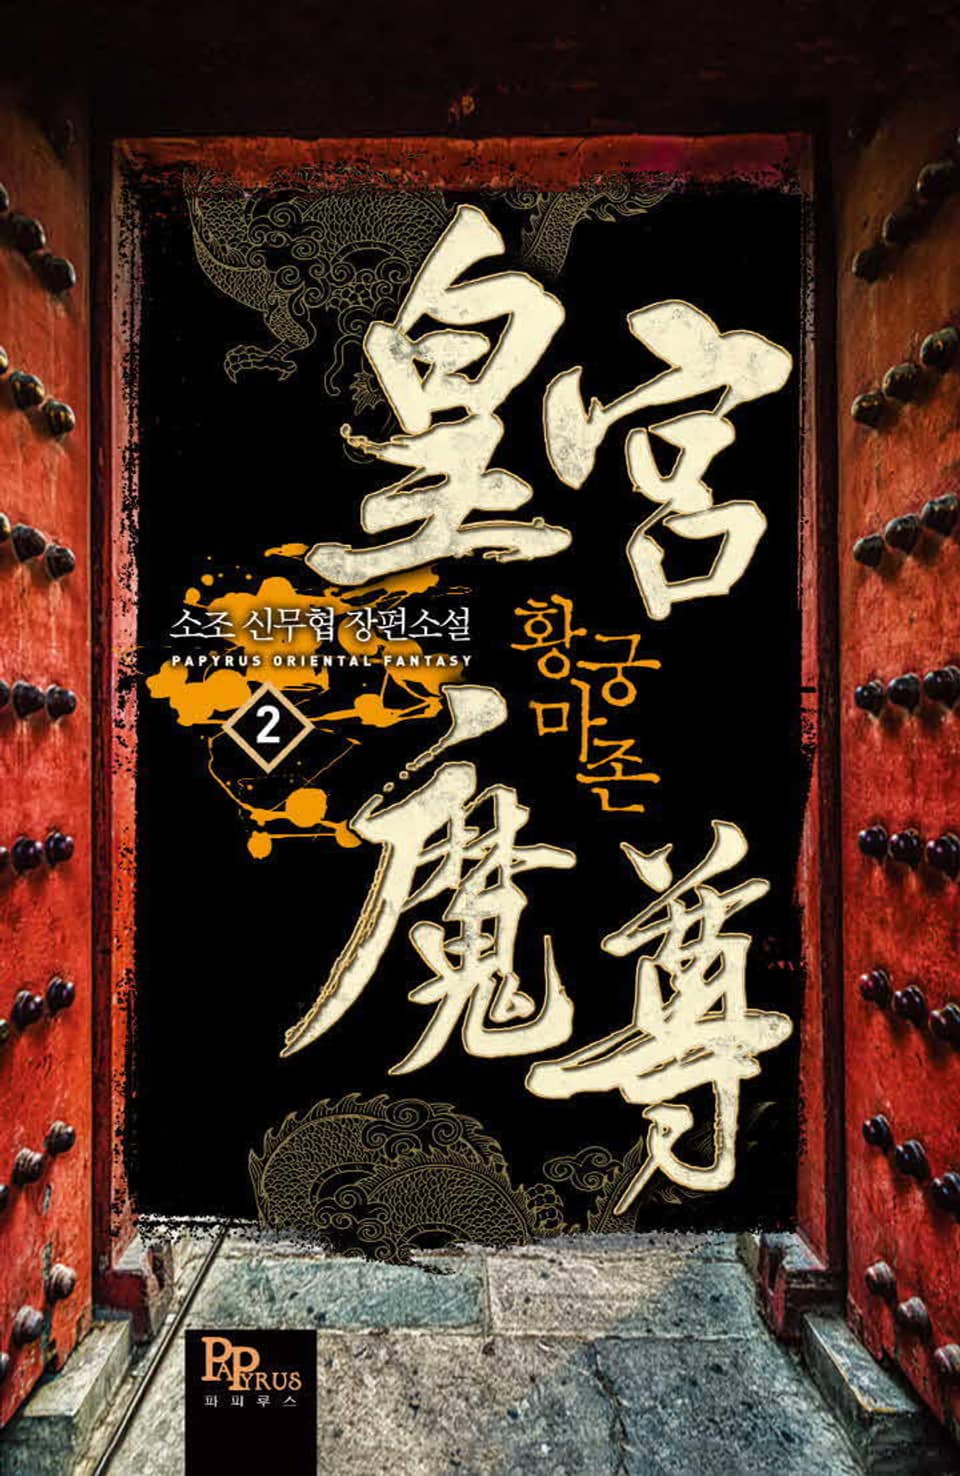 皇宮
소조 신무협 장편소설
PAPYRUS ORIENTAL FANTASY
2
황궁
마존
魔尊
PAPYRUS
파피루스